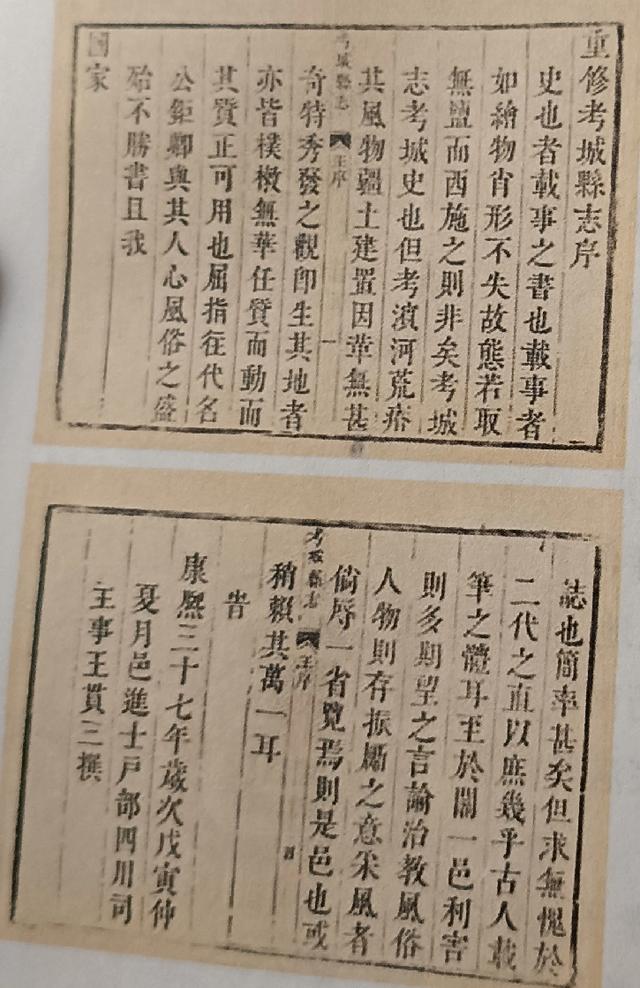 重修考城縣志序
史也者載事之書也載事者
如繪物肖形不失故態若取
無鹽而西施之則非矣考城
志考城史也但考濱河荒瘠
其風物疆土建置因革無甚
考城縣志
王序
一
奇特秀發之觀卽生其地者
亦皆樸樕無華任質而動而
其質正可用也屈指往代名
公鉅卿與其人心風俗之盛
殆不勝書且我
國家
誌也簡率甚矣但求無愧於
二代之直以庶幾乎古人載
筆之體耳至於關一邑利害
則多期望之言論治教風俗
人物則存振厲之意采風者
倘辱一省覽焉則是邑也或
考城縣志
王序
稍賴其萬一耳
告
康熙三十七年歲次戊寅仲
夏月邑進士戶部四川司
主事王貫三撰